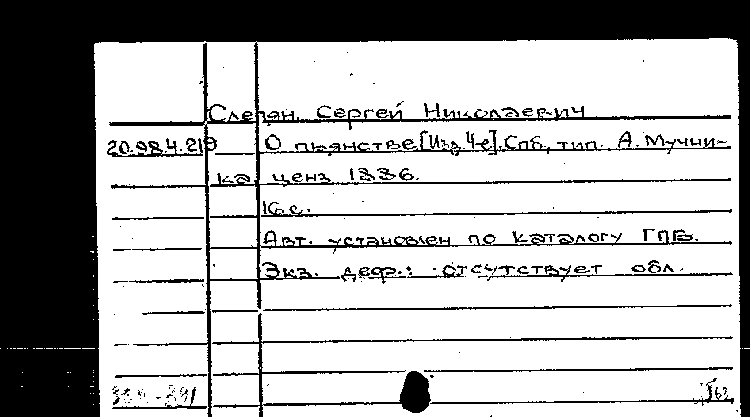 Слепян, Сергей Николаевич
20.98.4.219 О пьянстве [Изд. 4-е]. Спб, тип. А. Мучни-
ка ценз 1886.
16 с.
Авт. установлен по каталогу ГПБ.
Экз. деф.: отсутствует обл.